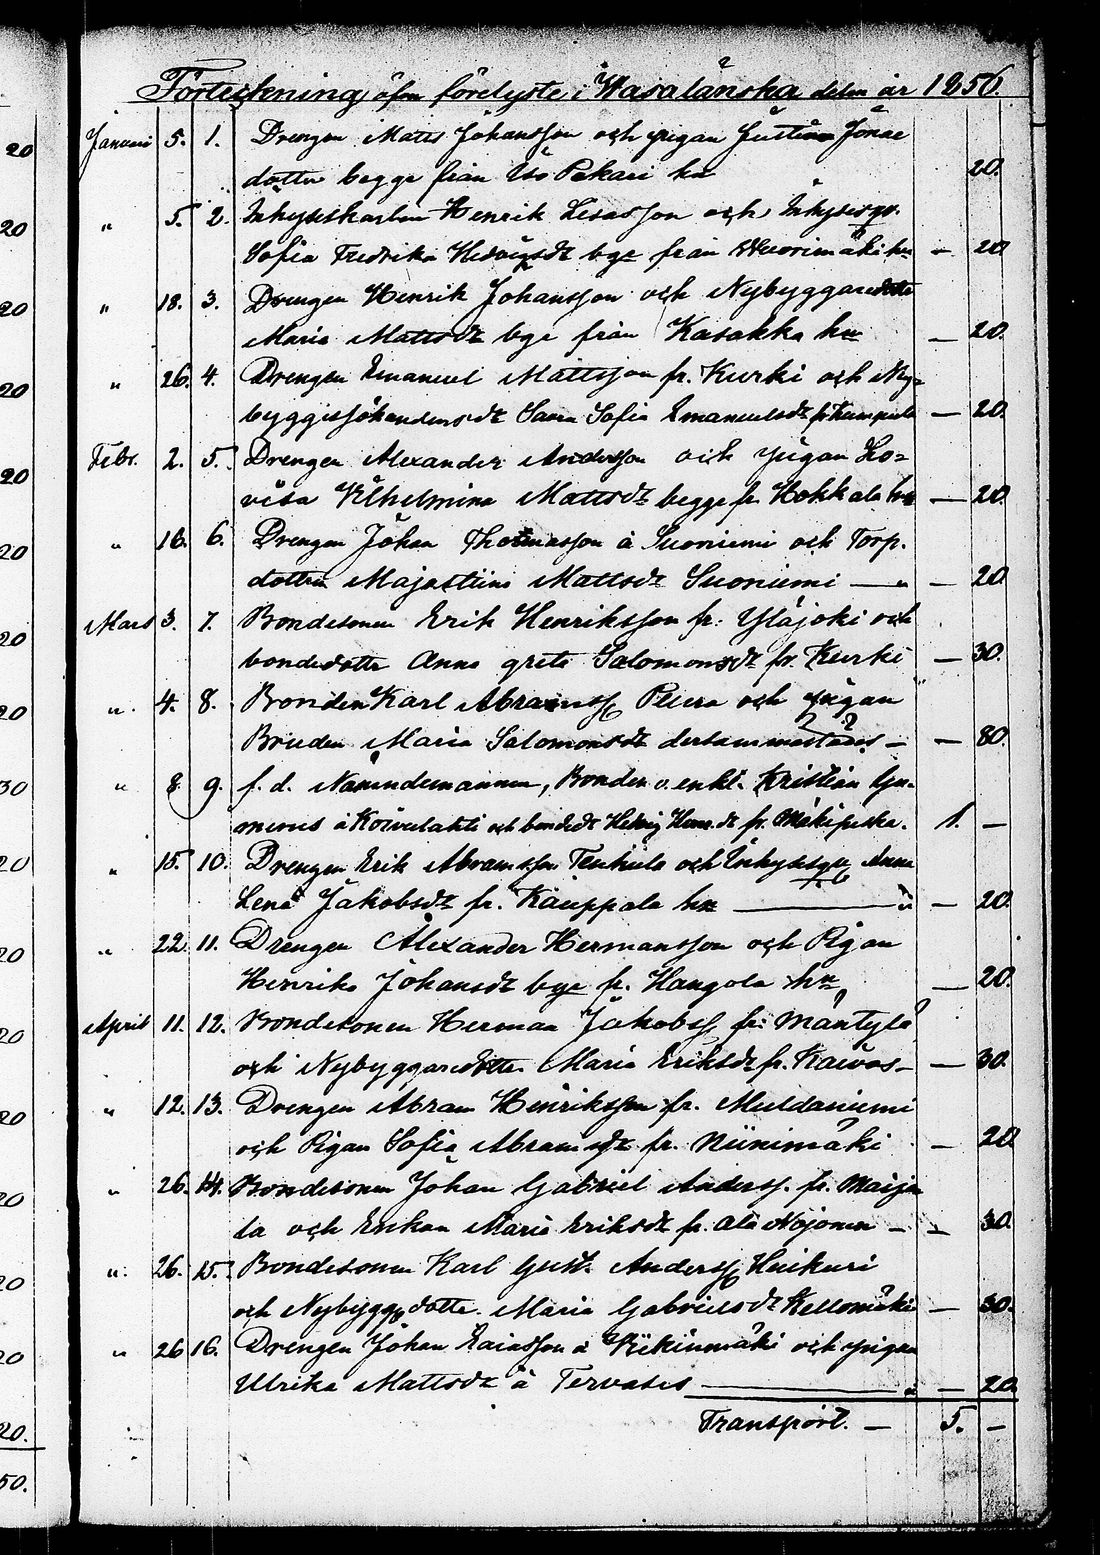 Förteckning öfver förelyste i Wasalänska delen år 1856.
Januari 5. 1. Drengen Matts Johansson och pigan Gustava Jonae
dotter begge från Iso Pekari hn 20.
" 5. 2. Inhyseskarlen Henrik Lesasson och Inhysesqv.
Sofia Fredrika Hedvigsdr bge från Wuorimäki hn — 20
" 18. 3. Drengen Henrik Johansson och Nybyggaredottr
Maria Mattsdr bge från Kasakka hn — 20.
" 26. 4. Drengen Emanuel Mattsson fr. Kurki och Ny-
byggesjohandersdr Sofia Emanuelsdr fr Kumpula — 20.
Febr. 2. 5. Drengen Alexander Andersson och pigan Lo-
visa Vilhelmina Mattsdr begge fr. Hokkala hn — 20.
" 16. 6. Drengen Johan Thomasson å Suoniemi och Torp.
dottern Majastiina Mattsdr Suoniemi — " — 20
Mars 3. 7. Bondesonen Erik Henriksson fr. Yläjoki och
bondedottr Anna greta Salomonsdr fr. Kurki — 30.
" 4. 8. Bonden Karl Abramss Peura och pigan
Bruden Maria Salomonsdr dersammastädes — — 80.
" 8 9. f. d. Nämndemannen, Bonden o. enkl. Kristian Gu-
merus å Koivulahti och bondedr Hedvig Henr.dr fr. Mäkipeska. 1. —
" 15. 10. Drengen Erik Abramsson Tenhula och Inhysesqv Anna
Lena Jakobsdr fr. Kauppala hn — " — 20.
" 22. 11. Drengen Alexander Hermansson och Pigan
Henrika Johansdr bge fr. Hangola hn — 20.
April 11. 12. Bondesonen Herman Jakobss fr. Mäntylä
och Nybyggaredottr Maria Eriksdr fr. Kaivos — — 30.
" 12. 13. Drengen Abram Henriksson fr. Muldaniemi
och Pigan Sofia Abramsdr fr. Niinimäki — 20
" 26. 14. Bondesonen Johan Gabriel Anderss. fr. Maija
la och Enkan Maria Eriksdr fr. Ala Nojonen — — 30.
" 26. 15. Bondesonen Karl Gust. Anderss Huikuri
och Nybygg dotte. Maria Gabrielsdr Kellomäki — 30.
" 26 16. Drengen Johan Esaiasson å Riikinmäki och pigan
Ulrika Mattsdr å Tervates — " — 20
Transport. — 5. —
20
20
20
20
20
20
20
20
30
20
20
20
20
20
20
20
20.
50.